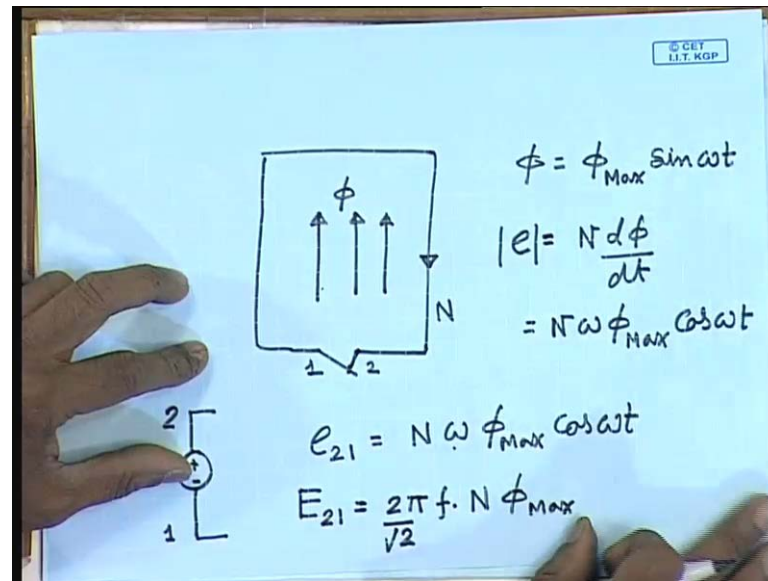 © CET
I.I.T. KGP
ϕ = ϕ_Max sin ωt
ϕ
|e| = N dϕ/dt
N
= N ω ϕ_Max Cos ωt
1 2
2
e_21 = N ω ϕ_Max Cos ωt
+
-
E_21 = 2π/√2 f. N ϕ_Max
1